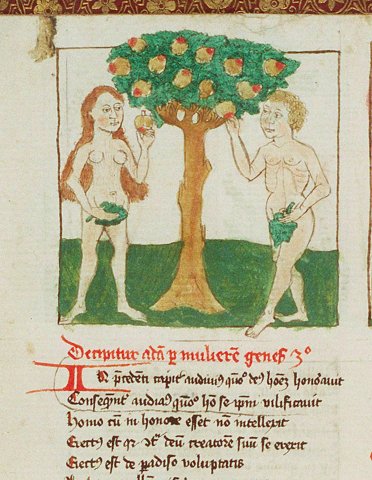 Decipitur adā ꝑ mulierē geneſ 3º
IN p̄cedēti capitl̓o audiuimꝰ quō deꝰ hoīez honorauit
Conſequēt᷑ audiamꝰ quō hō ſe ip̄m vilificauit
Homo cū in honore eſſet nō intellexit
Eiectꝰ eſt qꝛ ꝯt̄ deū creatorē ſuū ſe erexit
Eiectꝰ eſt de ꝑadiſo voluptatis